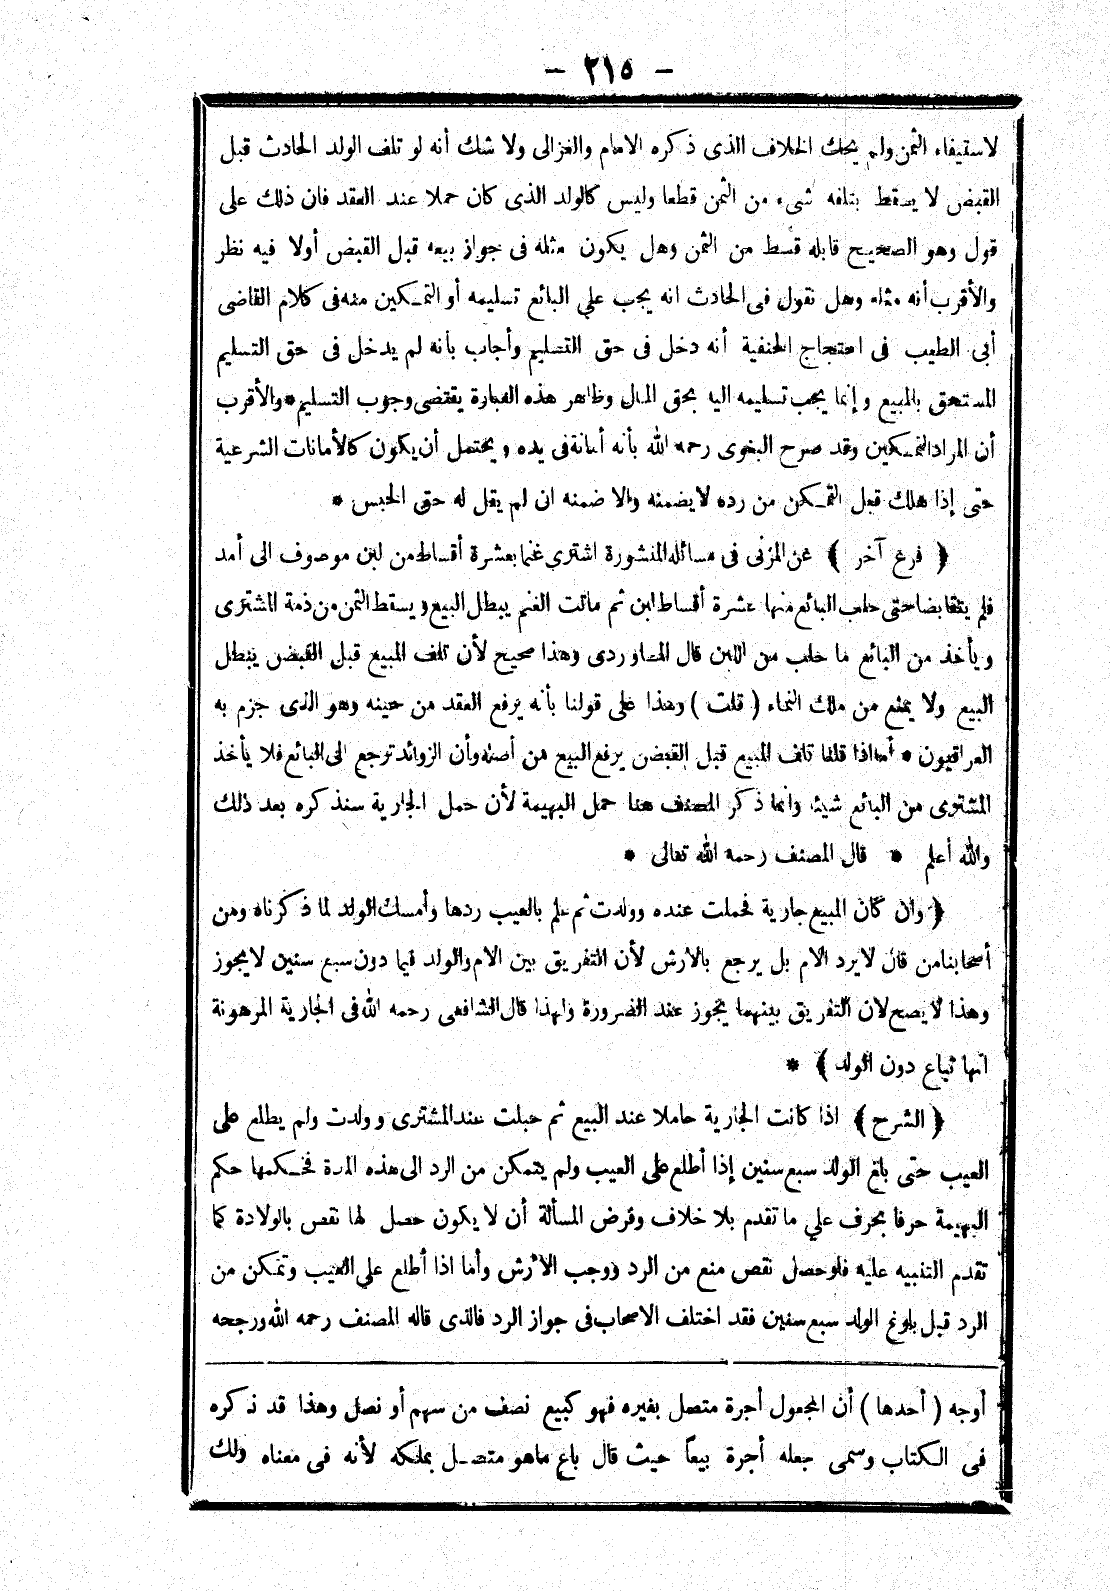 - ٢١٥ -
لاستيفاء الثمن ولم يحك الخلاف الذى ذكره الامام والغزالى ولا شك أنه لو تلف الولد الحادث قبل
القبض لا يسقط بتلفه شىء من الثمن قطعا وليس كالولد الذى كان حملا عند العقد فان ذلك على
قول وهو الصحيح قابله قسط من الثمن وهل يكون مثله فى جواز بيعه قبل القبض أولا فيه نظر
والأقرب أنه مثله وهل نقول فى الحادث انه يجب على البائع تسليمه أو التمكين منه فى كلام القاضى
أبى الطيب فى احتجاج الحنفية أنه دخل فى حق التسليم وأجاب بأنه لم يدخل فى حق التسليم
المستحق بالمبيع وإنما يجب تسليمه اليه بحق المال وظاهر هذه العبارة يقتضى وجوب التسليم * والأقرب
أن المراد التمكين وقد صرح البغوى رحمه الله بأنه أمانة فى يده ويحتمل أن يكون كالأمانات الشرعية
حتى إذا هلك قبل التمكن من رده لا يضمنه والا ضمنه ان لم يقل له حق الحبس *
﴿ فرع آخر ﴾ عن المزنى فى مسائله المنشورة اشترى غنما بعشرة أقساط من لبن موصوف الى أمد
فلم يتقابضا حتى حلب البائع منها عشرة أقساط لبن ثم ماتت الغنم يبطل البيع ويسقط الثمن من ذمة المشترى
ويأخذ من البائع ما حلب من اللبن قال الماوردى وهذا صحيح لأن تلف المبيع قبل القبض يبطل
البيع ولا يمنع من ملك النماء ( قلت ) وهذا على قولنا بأنه يرفع العقد من حينه وهو الذى جزم به
العراقيون * أما اذا قلنا تلف المبيع قبل القبض يرفع البيع من أصله وأن الزوائد ترجع الى البائع فلا يأخذ
المشترى من البائع شيئا وانما ذكر المصنف هنا حمل البهيمة لأن حمل الجارية سنذكره بعد ذلك
والله أعلم * قال المصنف رحمه الله تعالى *
﴿ وان كان المبيع جارية فحملت عنده وولدت ثم علم بالعيب ردها وأمسك الولد لما ذكرناه ومن
أصحابنا من قال لا يرد الام بل يرجع بالارش لأن التفريق بين الام والولد فيما دون سبع سنين لا يجوز
وهذا لا يصح لان التفريق بينهما يجوز عند الضرورة ولهذا قال الشافعى رحمه الله فى الجارية المرهونة
انها تباع دون الولد ﴾ *
﴿ الشرح ﴾ اذا كانت الجارية حاملا عند البيع ثم حبلت عند المشترى وولدت ولم يطلع على
العيب حتى بلغ الولد سبع سنين إذا أطلع على العيب ولم يتمكن من الرد الى هذه المدة فحكمها حكم
البهيمة حرفا بحرف على ما تقدم بلا خلاف وفرض المسألة أن لا يكون حصل لها نقص بالولادة كما
تقدم التنبيه عليه فلو حصل نقص منع من الرد ووجب الارش وأما اذا أطلع على العيب وتمكن من
الرد قبل بلوغ الولد سبع سنين فقد اختلف الاصحاب فى جواز الرد فالذى قاله المصنف رحمه الله ورجحه
أوجه ( أحدها ) أن المجعول أجرة متصل بغيره فهو كبيع نصف من سهم أو نصل وهذا قد ذكره
فى الكتاب وسمى جعله أجرة بيعاً حيث قال باع ماهو متصل بملكه لأنه فى معناه ولك